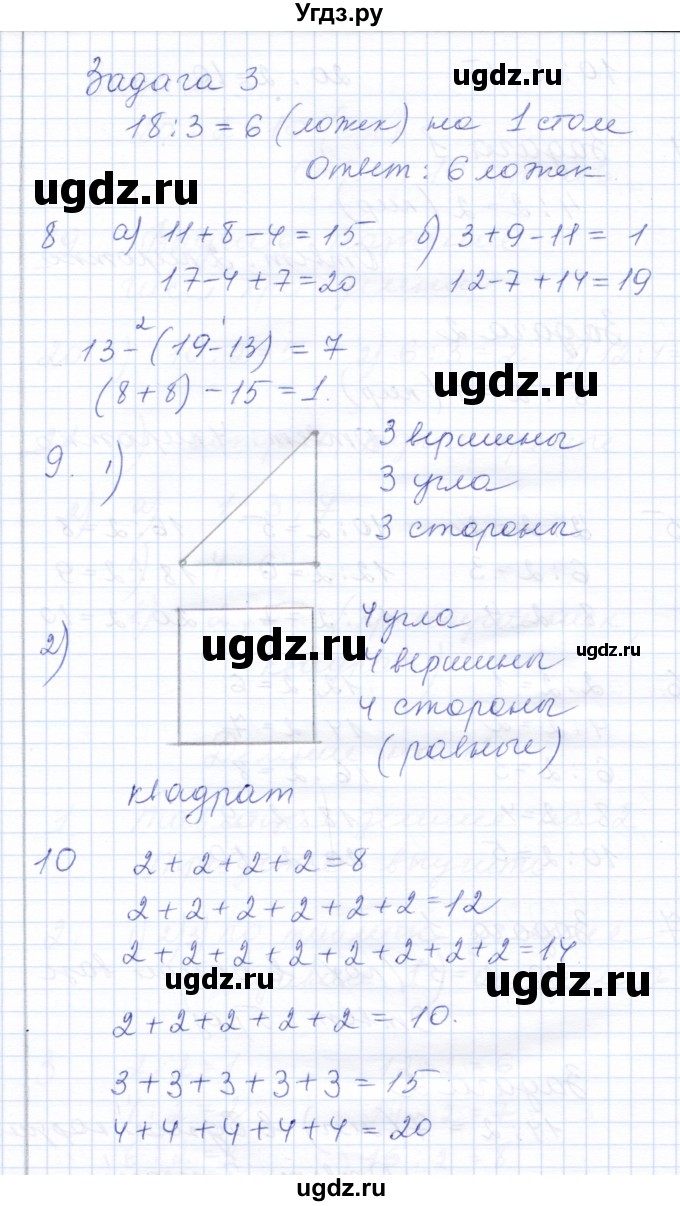 Угдз.ру
Задача 3
ugdz.ru
18 : 3 = 6 (ложек) на 1 стол
Ответ: 6 ложек.
ugdz.ru
8 а) 11+8-4=15 б) 3+9-11= 1
17-4+7=20 12-7+14=19
2 1
13-(19-13) = 7
(8+8)-15=1.
ugdz.ru
9. 1) 3 вершины
3 угла
3 стороны
2) 4 угла
ugdz.ru 4 вершины ugdz.ru
4 стороны
(равные)
квадрат
10 2+2+2+2=8
2+2+2+2+2+2=12
2+2+2+2+2+2+2+2=14
ugdz.ru ugdz.ru
2+2+2+2+2 = 10.
3+3+3+3+3=15
4+4+4+4+4=20
ugdz.ru